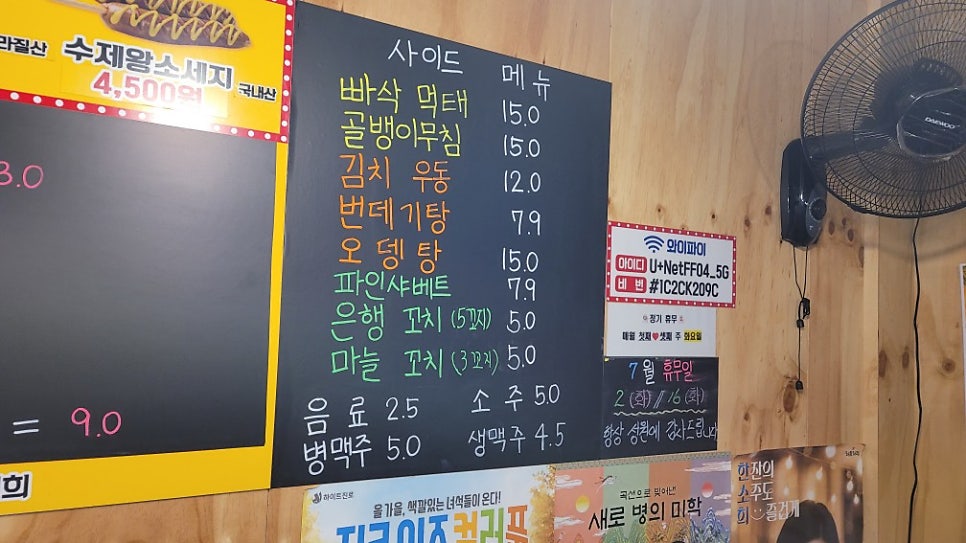 라질산
수제왕소세지
4,500원 국내산
3.0
= 9.0
희
사이드 메뉴
빠삭 먹태 15.0
골뱅이무침 15.0
김치 우동 12.0
번데기탕 7.9
오뎅탕 15.0
파인샤베트 7.9
은행 꼬치 (5꼬지) 5.0
마늘 꼬치 (3꼬지) 5.0
음료 2.5 소주 5.0
병맥주 5.0 생맥주 4.5
DAEWOO
와이파이
아이디 U+NetFF04_5G
비번 #1C2CK209C
정기 휴무
매월 첫째♥셋째 주 화요일
7월 휴무일
2(화) // 16(화)
항상 성원에 감사드립니다
하이트진로
올 가을, 색깔있는 녀석들이 온다!
곡선으로 빚어낸
새로 병의 미학
한잔의
소주도
희 즐겁게